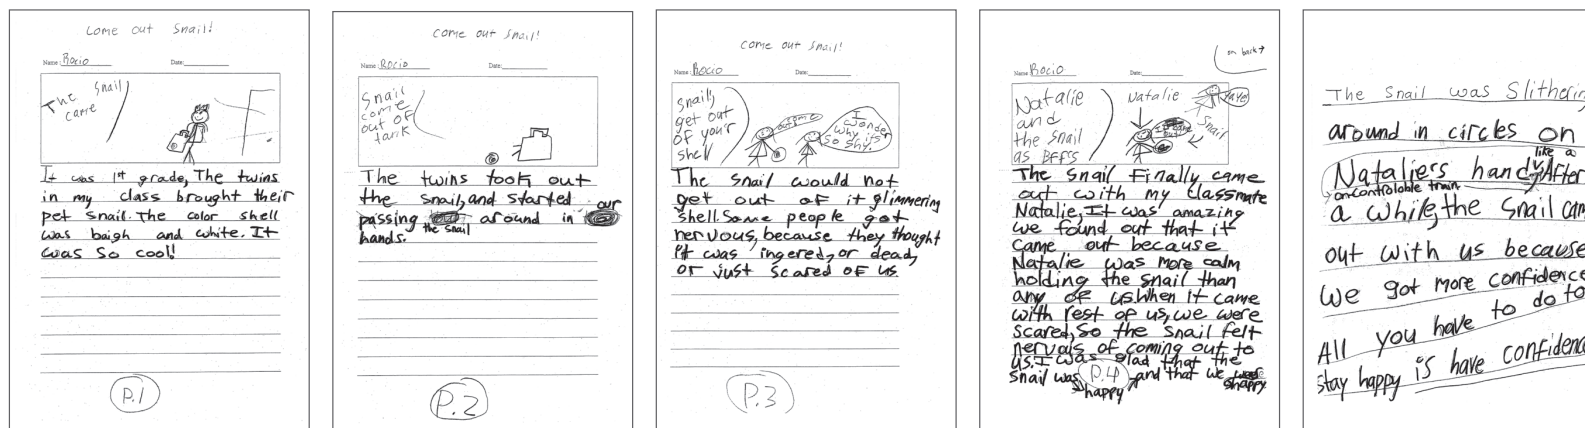 Come out Snail!
Name: Rocio Date:
The Snail
came
It was 1st grade, The twins
in my class brought their
pet snail. The color shell
was baigh and white. It
was so cool!
P.1
Come out Snail!
Name: Rocio Date:
Snail
come
out of
tank
The twins took out
the snail, and started our
passing around in
the snail
hands.
P.2
Come out Snail!
Name: Rocio Date:
Snail,
get out
of your
shell
I
wonder
why it's
so shy.
The snail would not
get out of it glimmering
shell. Some people got
nervous, because they thought
it was ingered, or dead,
or just scared of us.
P.3
on back →
Name: Rocio Date:
Natalie
and
the Snail
as BFF's
Natalie
Snail
The snail Finally came
out with my classmate
Natalie, It was amazing
we found out that it
came out because
Natalie was more calm
holding the snail than
any of us. When it came
with rest of us, we were
scared, so the snail felt
nervals of coming out to
us. I was glad that the
snail was happy and that we
happy
P.4
The snail was Slitherin
around in circles on
Natalie's hand, like a
oncontrolable train. After
a while, the snail cam
out with us because
we got more confidence
All you have to do to
stay happy is have confidenc